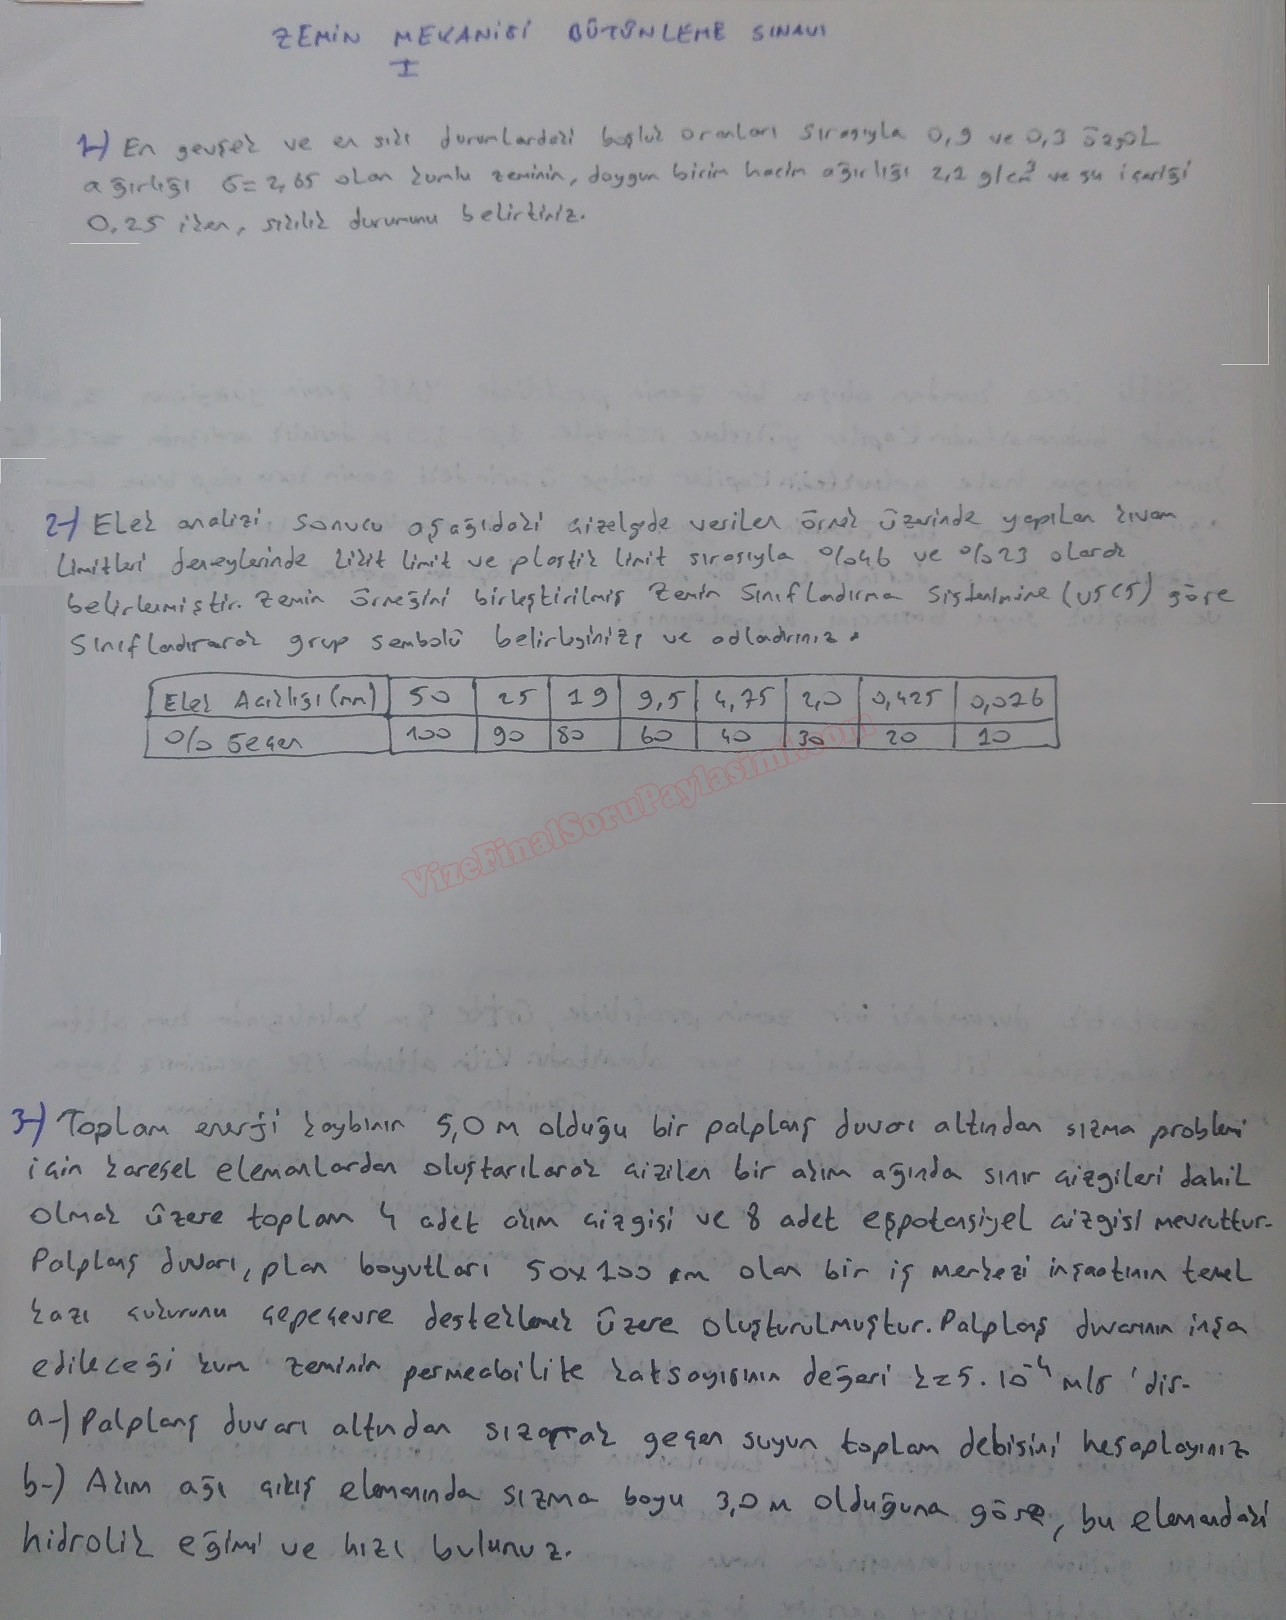 ZEMİN MEKANİĞİ BÜTÜNLEME SINAVI
I
1-) En gevşek ve en sıkı durumlardaki boşluk oranları sırasıyla 0,9 ve 0,3 özgül
ağırlığı G=2,65 olan kumlu zeminin, doygun birim hacim ağırlığı 2,1 g/cm³ ve su içeriği
0,25 iken, sıkılık durumunu belirtiniz.
2-) Elek analizi sonucu aşağıdaki çizelgede verilen örnek üzerinde yapılan kıvam
limitleri deneylerinde likit limit ve plastik limit sırasıyla %46 ve %23 olarak
belirlenmiştir. Zemin örneğini birleştirilmiş Zemin Sınıflandırma Sistemine (USCS) göre
Sınıflandırarak grup sembolü belirleyiniz, ve adlandırınız.
Elek Açıklığı (mm) 50 25 19 9,5 4,75 2,0 0,425 0,076
% Geçen 100 90 80 60 40 30 20 10
VizeFinalSoruPaylasimi.com
3-) Toplam enerji kaybının 5,0 m olduğu bir palplanş duvarı altından sızma problemi
için karesel elemanlardan oluşturılarak çizilen bir akım ağında sınır çizgileri dahil
olmak üzere toplam 4 adet akım çizgisi ve 8 adet eşpotansiyel çizgisi mevcuttur.
Palplanş duvarı, plan boyutları 50x100 m olan bir iş merkezi inşaatının temel
kazı çukurunu çepeçevre desteklemek üzere oluşturulmuştur. Palplanş duvarının inşa
edileceği kum zeminin permeabilite katsayısının değeri k=5.10⁻⁴ m/s 'dir.
a-) Palplanş duvarı altından sızarak geçen suyun toplam debisini hesaplayınız
b-) Akım ağı çıkış elemanında sızma boyu 3,0 m olduğuna göre, bu elemandaki
hidrolik eğimi ve hızı bulunuz.